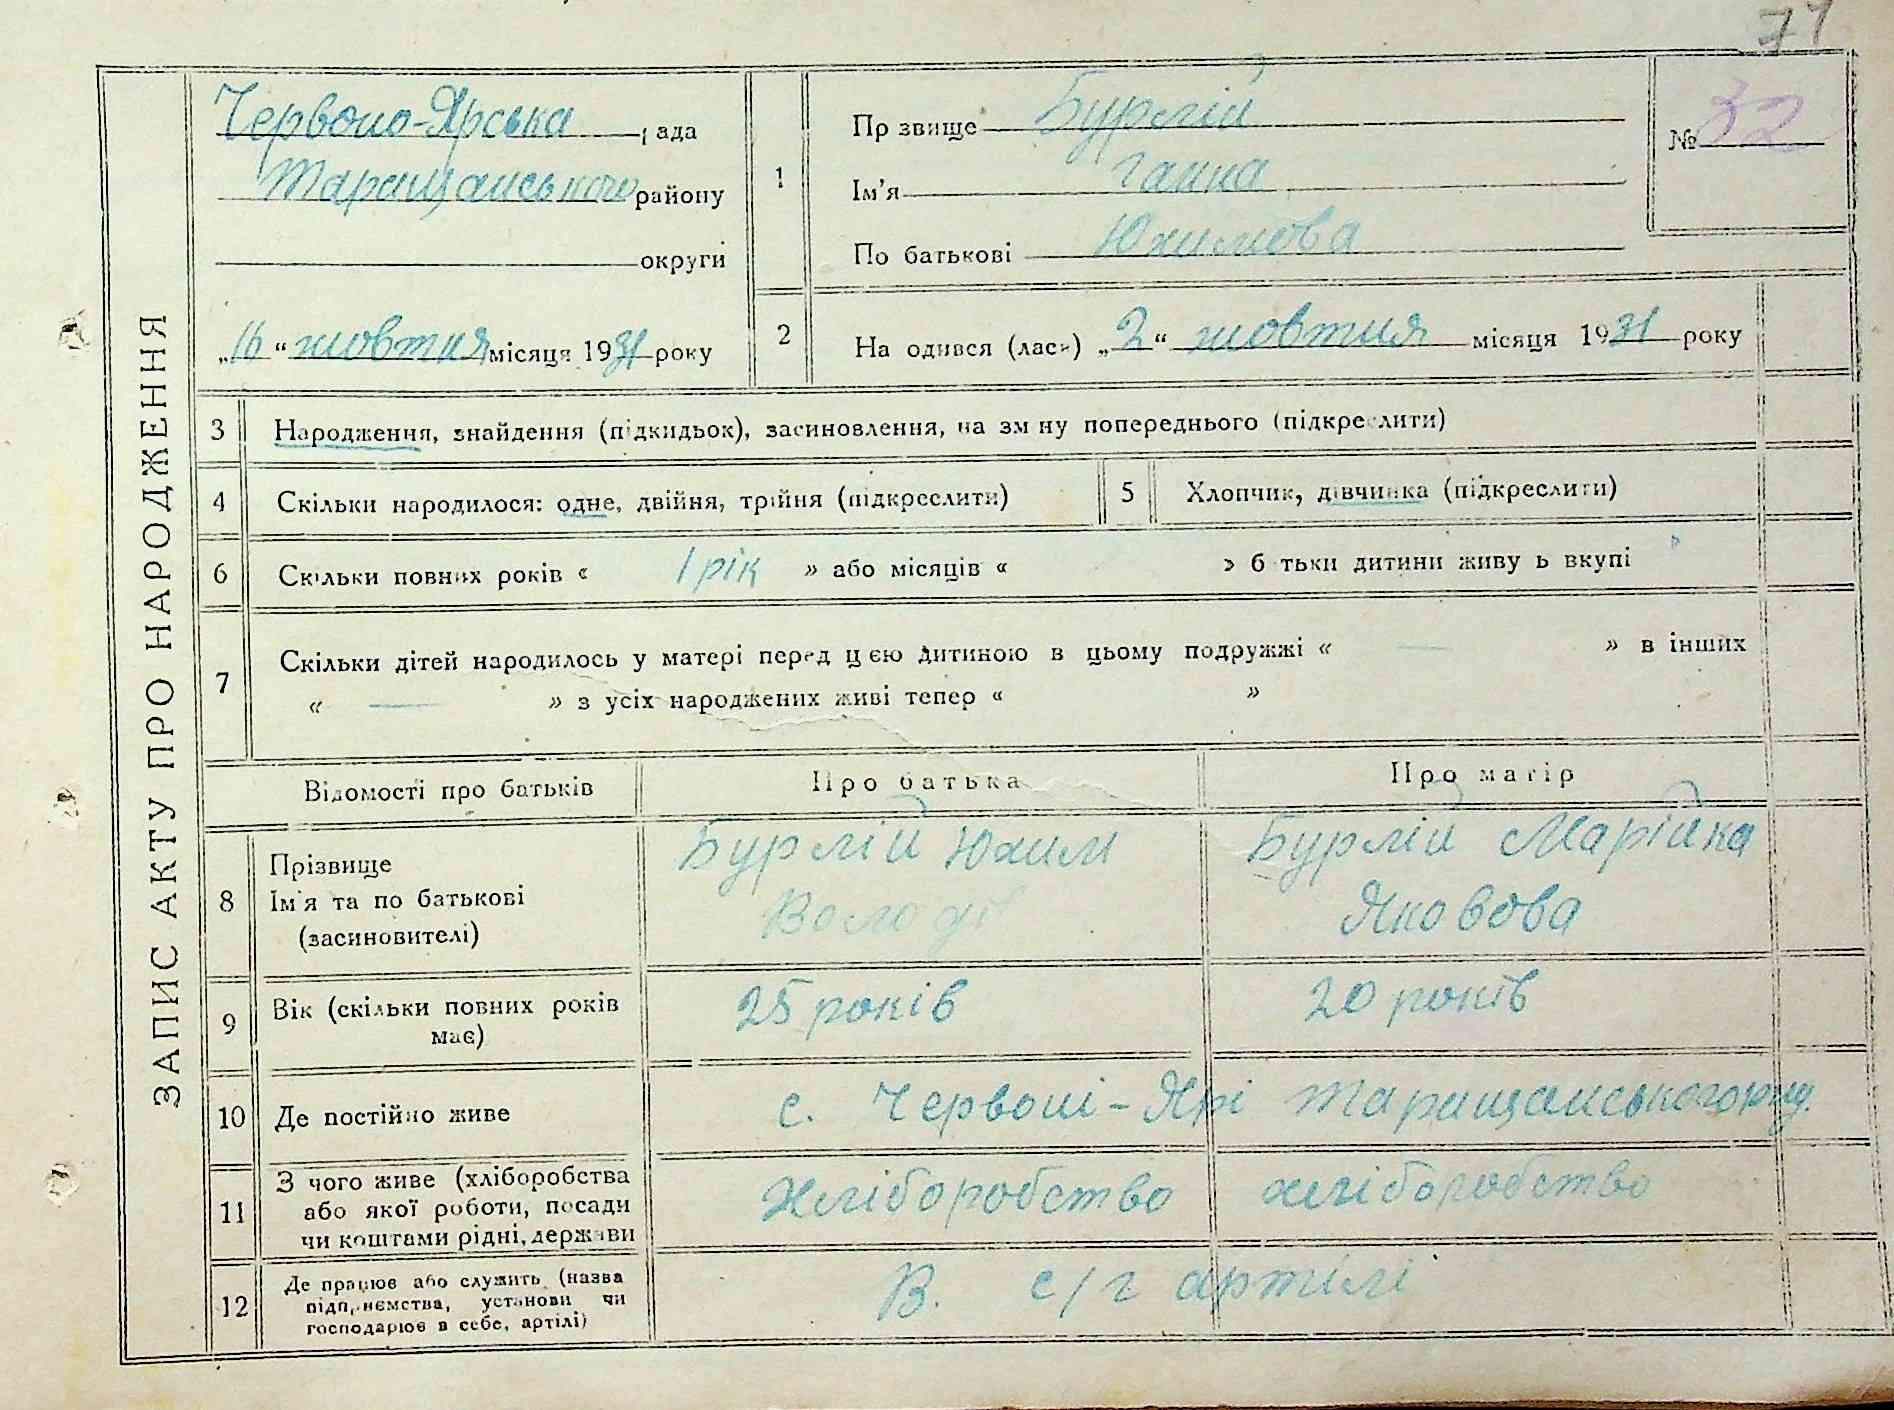 71
ЗАПИС АКТУ ПРО НАРОДЖЕННЯ
Червоно-Ярська рада
Таращанського району
округи
„16“ жовтня місяця 1931 року
1
Прзвище Бурлій
Ім'я Ганна
По батькові Юхимова
№ 32
2
На одився (лась) „2“ жовтня місяця 1931 року
3 Народження, знайдення (підкидьок), засиновлення, на зм ну попереднього (підкреслити)
4 Скільки народилося: одне, двійня, трійня (підкреслити)
5 Хлопчик, дівчинка (підкреслити)
6 Скільки повних років « 1 рік » або місяців « » б тьки дитини живу ь вкупі
7 Скільки дітей народилось у матері перед цією дитиною в цьому подружжі « — » в інших
« — » з усіх народжених живі тепер « »
Відомості про батьків Про батька Про матір
8 Прізвище
Ім'я та по батькові
(засиновителі)
Бурлій Юхим
Володі
Бурлій Марійка
Яковова
9 Вік (скільки повних років
має)
25 років 20 років
10 Де постійно живе с. Червоні-Ярі Таращанського рну.
11 З чого живе (хліборобства
або якої роботи, посади
чи коштами рідні, держави
Хліборобство хліборобство
12 Де працює або служить (назва
підприємства, установи чи
господарює в себе, артілі)
В. с/г артілі